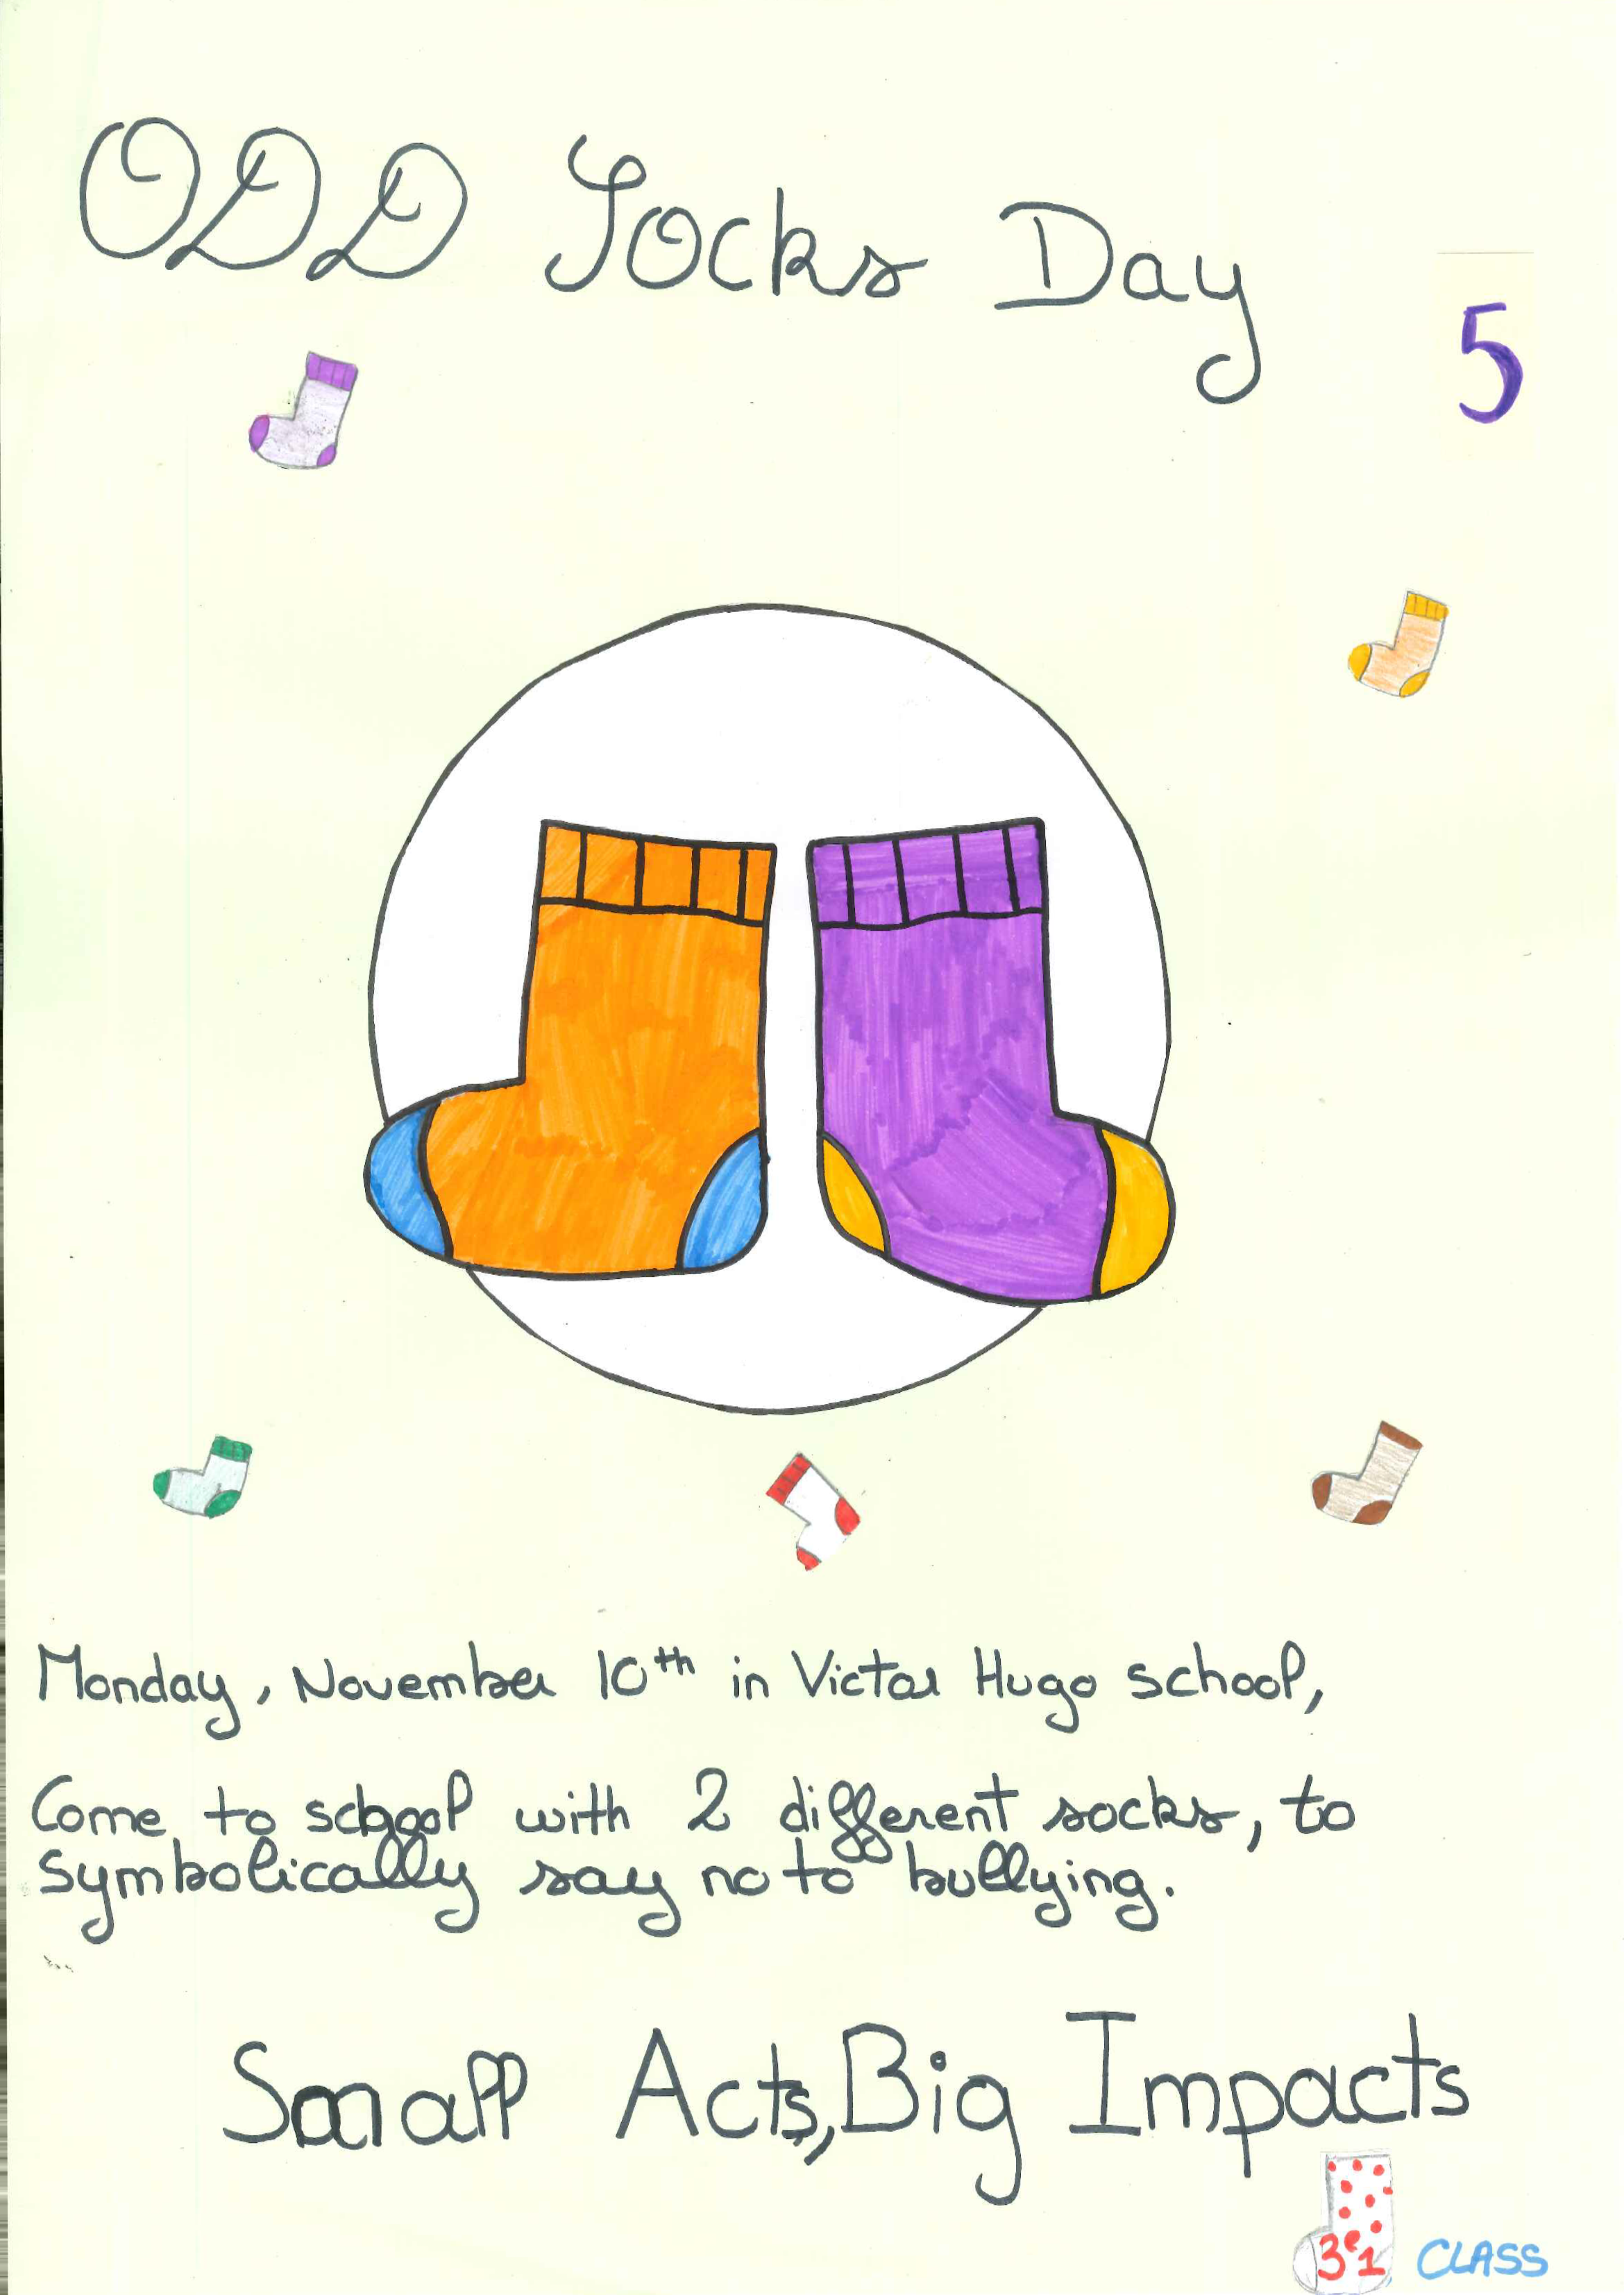 ODD Socks Day
5
Monday, November 10th in Victor Hugo school,
Come to school with 2 different socks, to
symbolically say no to bullying.
Small Acts, Big Impacts
3e1 CLASS